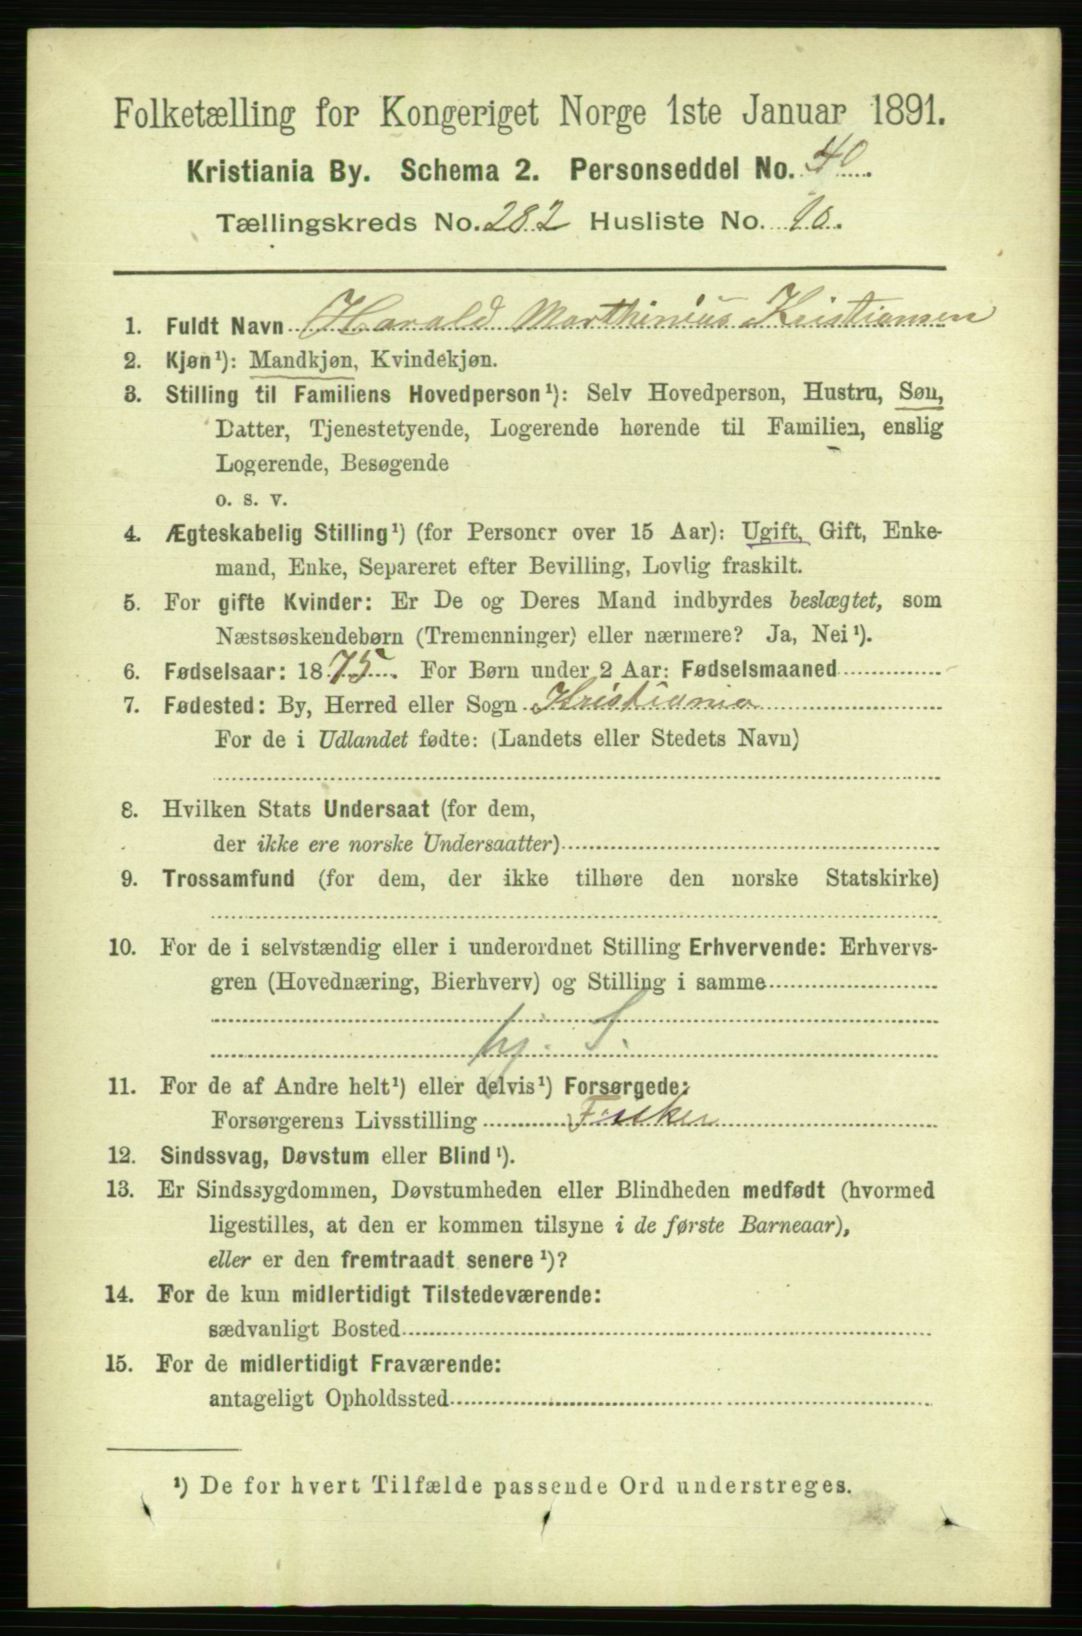 Folketælling for Kongeriget Norge 1ste Januar 1891.
Kristiania By. Schema 2. Personseddel No. 40.
Tællingskreds No. 282 Husliste No. 10.
1. Fuldt Navn Harald Marthinius Kristiansen
2. Kjøn¹): Mandkjøn, Kvindekjøn.
3. Stilling til Familiens Hovedperson¹): Selv Hovedperson, Hustru, Søn,
Datter, Tjenestetyende, Logerende hørende til Familien, enslig
Logerende, Besøgende
o. s. v.
4. Ægteskabelig Stilling¹) (for Personer over 15 Aar): Ugift, Gift, Enke-
mand, Enke, Separeret efter Bevilling, Lovlig fraskilt.
5. For gifte Kvinder: Er De og Deres Mand indbyrdes beslægtet, som
Næstsøskendebørn (Tremenninger) eller nærmere? Ja, Nei¹).
6. Fødselsaar: 1875. For Børn under 2 Aar: Fødselsmaaned
7. Fødested: By, Herred eller Sogn Kristiania
For de i Udlandet fødte: (Landets eller Stedets Navn)
8. Hvilken Stats Undersaat (for dem,
der ikke ere norske Undersaatter)
9. Trossamfund (for dem, der ikke tilhøre den norske Statskirke)
10. For de i selvstændig eller i underordnet Stilling Erhvervende: Erhvervs-
gren (Hovednæring, Bierhverv) og Stilling i samme
hj. S.
11. For de af Andre helt¹) eller delvis¹) Forsørgede:
Forsørgerens Livsstilling
12. Sindssvag, Døvstum eller Blind¹).
13. Er Sindssygdommen, Døvstumheden eller Blindheden medfødt (hvormed
ligestilles, at den er kommen tilsyne i de første Barneaar),
eller er den fremtraadt senere¹)?
14. For de kun midlertidigt Tilstedeværende:
sædvanligt Bosted
15. For de midlertidigt Fraværende:
antageligt Opholdssted
¹) De for hvert Tilfælde passende Ord understreges.